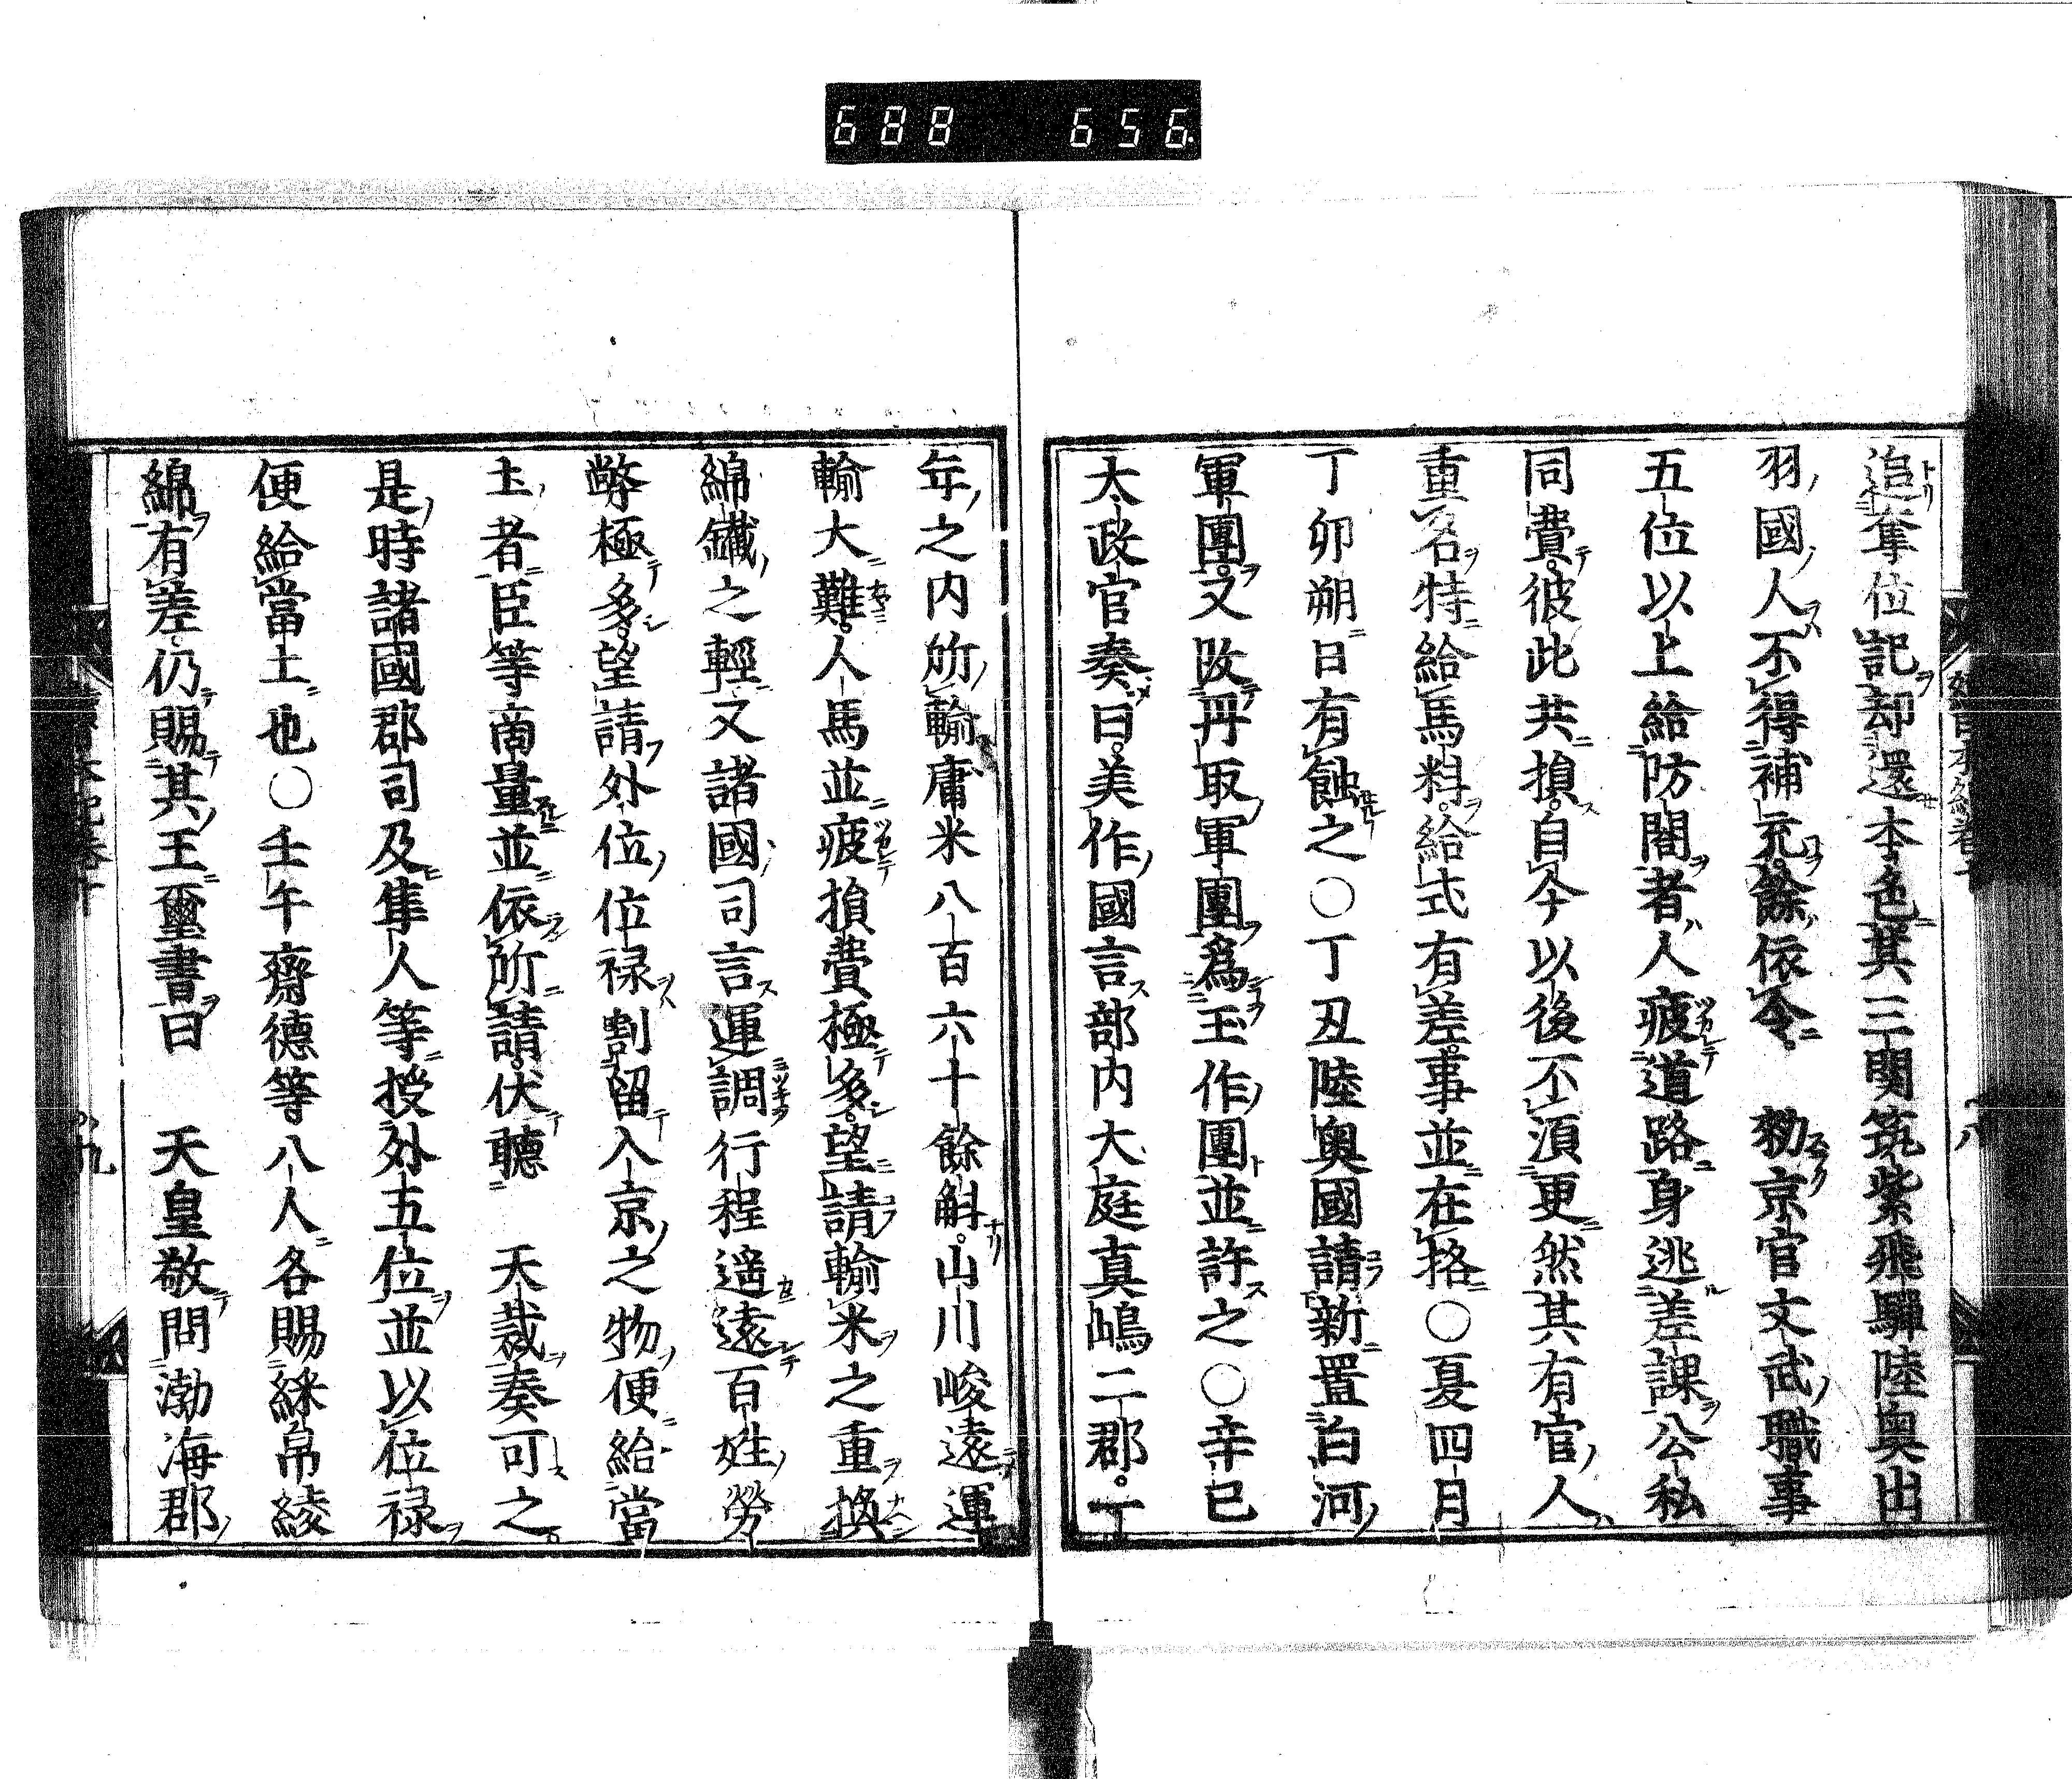 688 656
追奪位記却還本色其三関筑紫飛驒陸奥出
羽國人不得補充餘依令 勑京官文武職事
五位以上給防閤者人疲道路身逃差課公私
同費彼此共損自今以後不湏更然其有官人
重名特給馬料給式有差事並在格○夏四月
丁卯朔日有蝕之○丁丑陸奥國請新置白河
軍團又改丹取軍團為玉作團並許之○辛巳
太政官奏曰美作國言部内大庭真嶋二郡一
年之内所輸庸米八百六十餘斛山川峻遠運
輸大難人馬並疲損費極多望請輸米之重換
綿鐵之輕又諸國司言運調行程遥遠百姓勞
弊極多望請外位位禄割留入京之物便給當
土者臣等商量並依所請伏聽 天裁奏可之
是時諸國郡司及隼人等授外五位並以位禄
便給當土也○壬午齋德等八人各賜綵帛綾
綿有差仍賜其王璽書曰 天皇敬問渤海郡